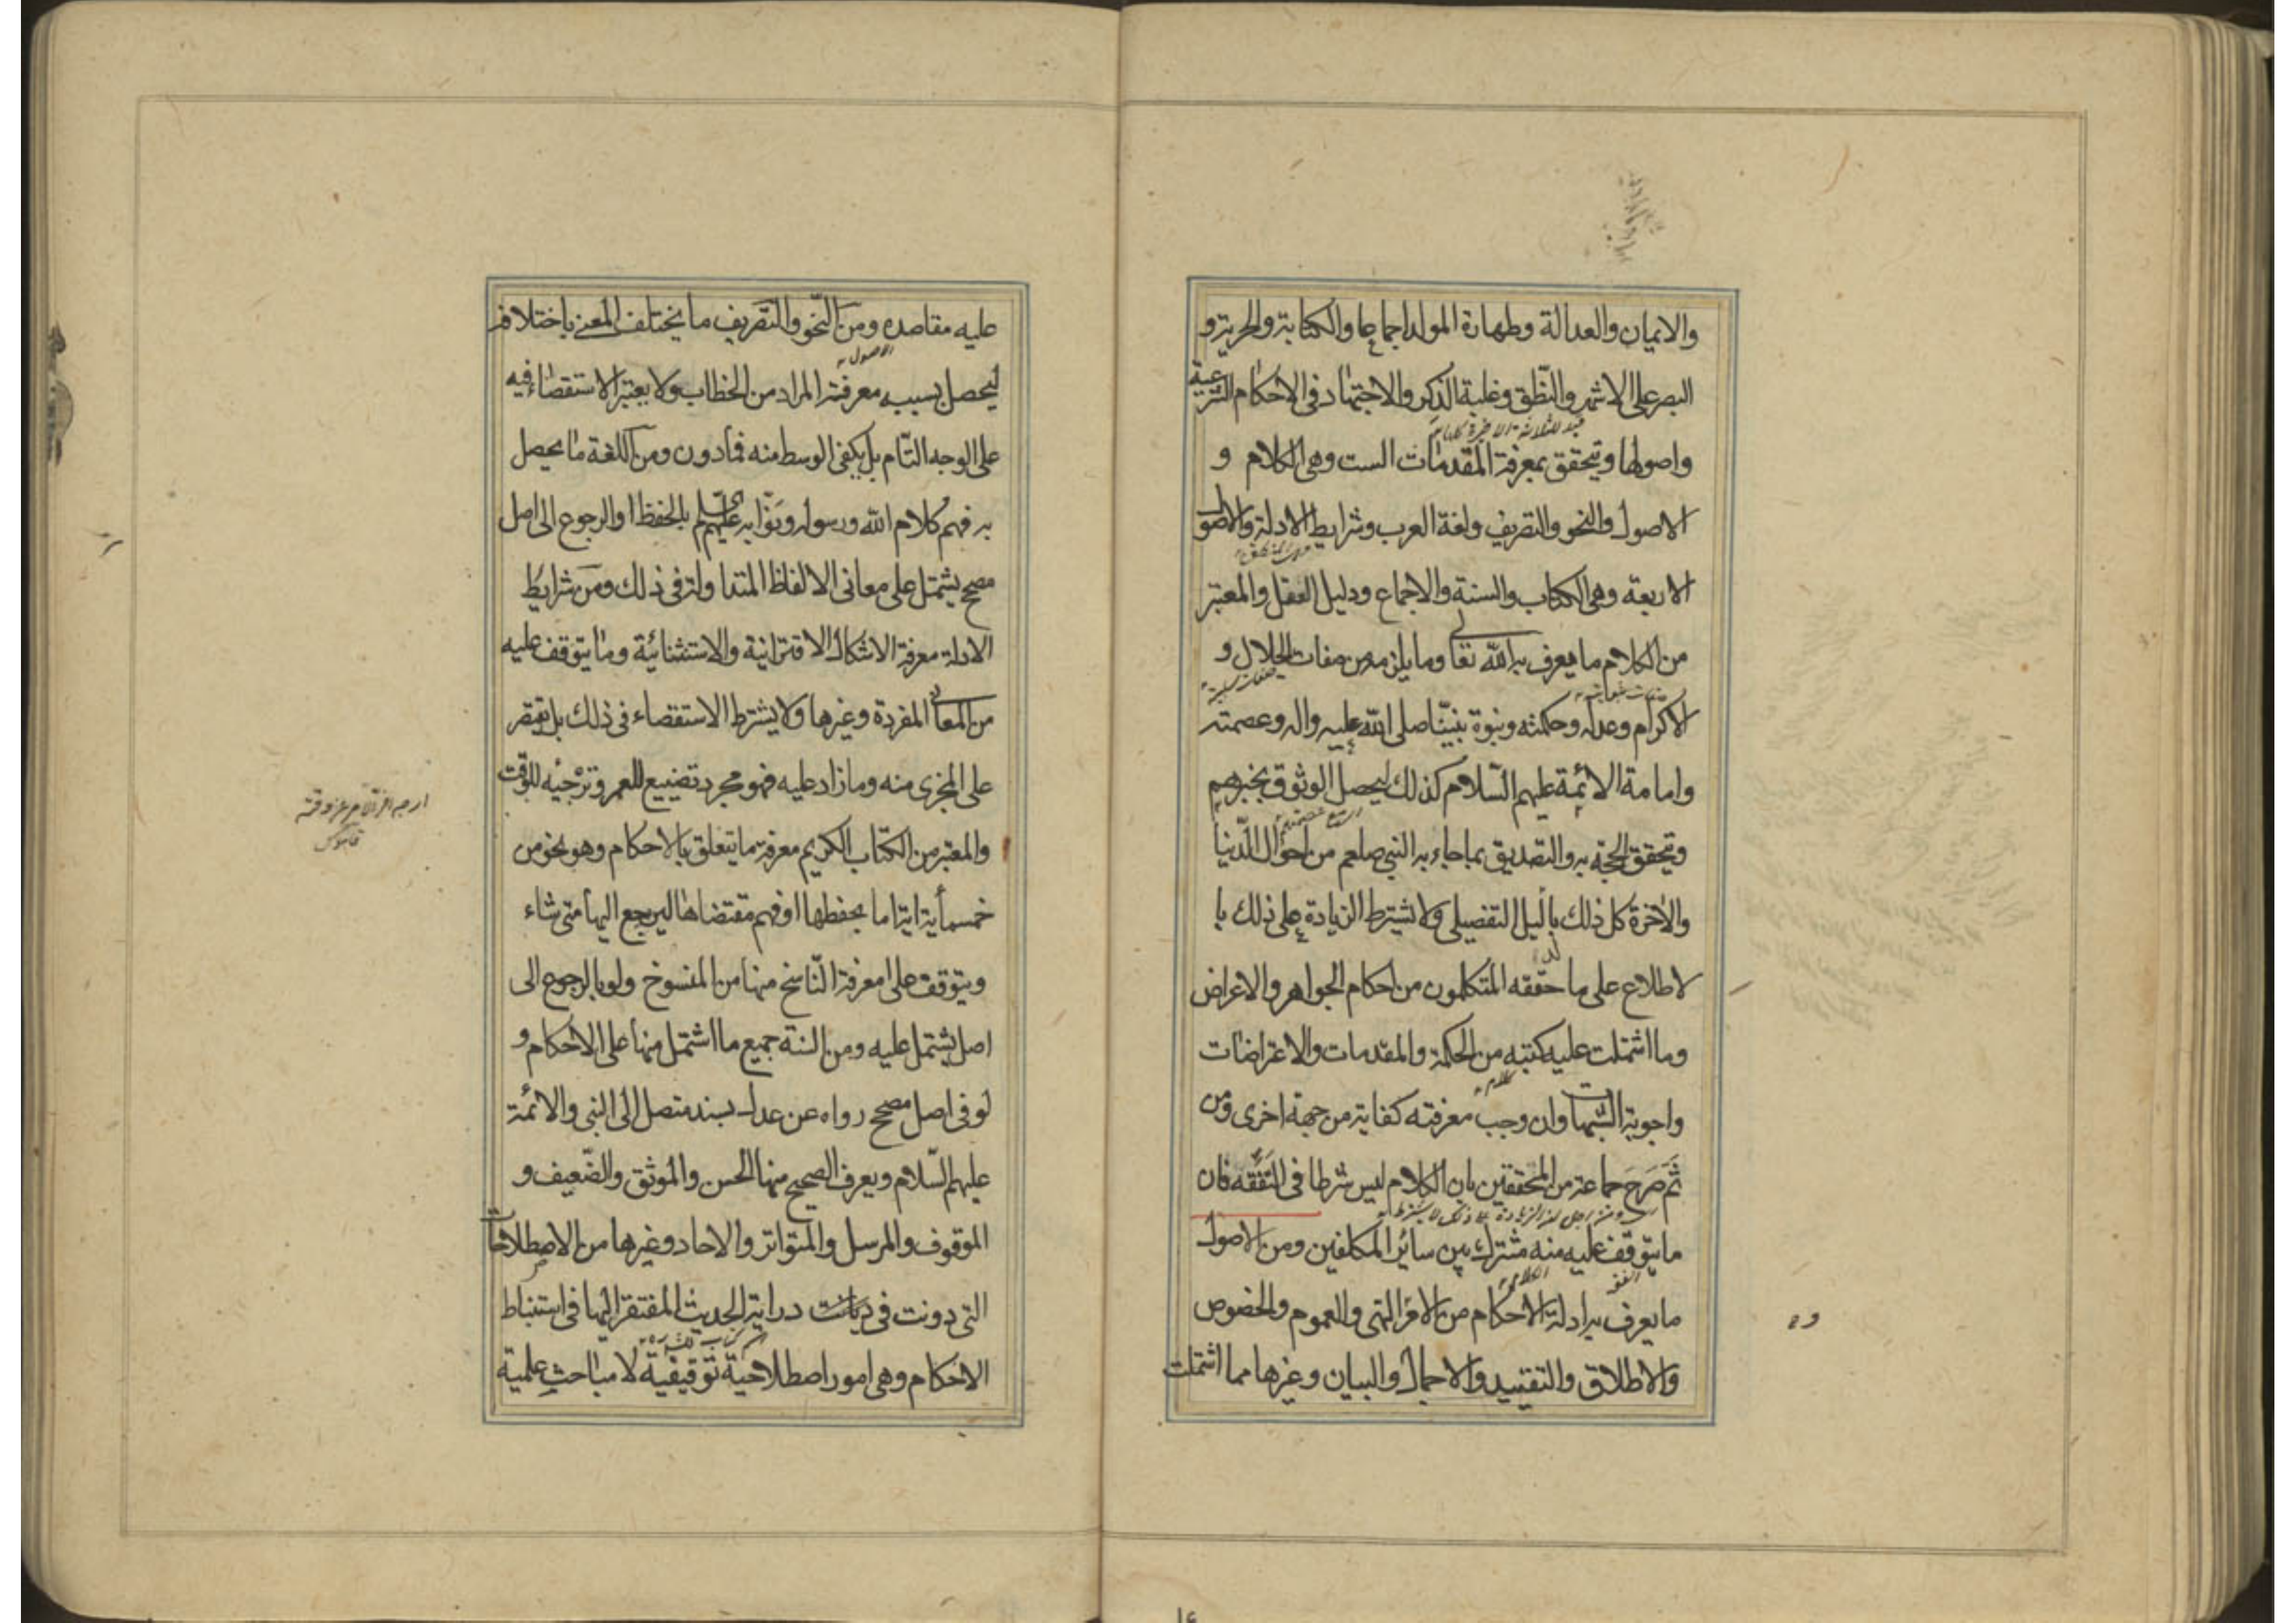 والايمان والعدالة وطهارة المولد اجماعا والكتابة والحرية و
البصر على الاشهر والنطق وغلبة الذكر والاجتهاد فى الاحكام الشرعية
واصولها ويتحقق بمعرفة المقدمات الست وهى الكلام و
الاصول والنحو والتصريف ولغة العرب وشرايط الادلة والاصول
الاربعة وهى الكتاب والسنة والاجماع ودليل العقل والمعتبر
من الكلام ما يعرف به الله تعا وما يلزمه من صفات الجلال و
صفات سلبية
صفات ثبوتية
الاكرام وعدله وحكمته ونبوة نبينا صلى الله عليه واله وعصمته
وامامة الائمة عليهم السلام كذلك ليحصل الوثوق بخبرهم
ويتحقق الحجة به والتصديق بما جاء به النبى صلعم من احوال الدنيا
والاخرة كل ذلك بالدليل التفصيلى ولا يشترط الزيادة على ذلك با
لاطلاع على ما حققه المتكلمون من احكام الجواهر والاعراض
وما اشتملت عليه كتبه من الحكمة والمقدمات والاعتراضات
كلام
واجوبة الشبهات وان وجب معرفته كفاية من جهة اخرى ومن
ثم صرح جماعة من المحققين بان الكلام ليس شرطا فى التفقه فان
ما يتوقف عليه منه مشترك بين سائر المكلفين ومن الاصول
ما يعرف به ادلة الاحكام من الامر والنهى والعموم والخصوص
والاطلاق والتقييد والاجمال والبيان وغيرها مما اشتملت
عليه مقاصده ومن النحو والتصريف ما يختلف المعنى باختلافه
الاصول
ليحصل بسببه معرفة المراد من الخطاب ولا يعتبر الاستقصاء فيه
على الوجه التام بل يكفى الوسط منه فمادون ومن اللغة ما يحصل
به فهم كلام الله ورسوله ونوابه عليهم بالحفظ او الرجوع الى اصل
مصحح يشتمل على معانى الالفاظ المتداولة فى ذلك ومن شرايط
الادلة معرفة الاشكال الاقترانية والاستثنائية وما يتوقف عليه
من المعانى المفردة وغيرها ولا يشترط الاستقصاء فى ذلك بل يقتصر
على المجزى منه وما زاد عليه فهو مجرد تضييع للعمر وترجئه للوقت
قاموس
والمعتبر من الكتاب الكريم معرفة ما يتعلق بالاحكام وهو نحو من
خمسمأية اية اما بحفظها او فهم مقتضاها ليرجع اليها متى شاء
ويتوقف على معرفة الناسخ منها من المنسوخ ولو بالرجوع الى
اصل يشتمل عليه ومن السنة جميع ما اشتمل منها على الاحكام و
لو فى اصل مصحح رواه عن عدل بسند متصل الى النبى والائمة
عليهم السلام ويعرف الصحيح منها الحسن والموثق والضعيف و
الموقوف والمرسل والمتواتر والاحاد وغيرها من الاصطلاحات
التى دونت فى دراية الحديث المفتقر اليها فى استنباط
الاحكام وهى امور اصطلاحية توقيفية لا مباحث علمية